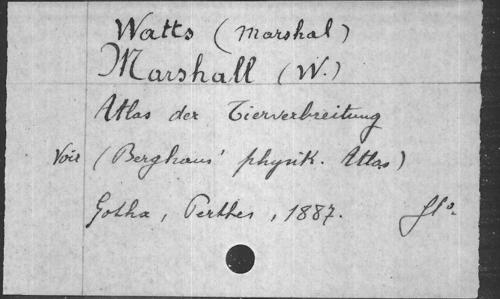 Watts (Marshal)
Marshall (W.)
Atlas der Tierverbreitung
Voir (Berghaus' physik. Atlas)
Gotha, Perthes, 1887. fl°.